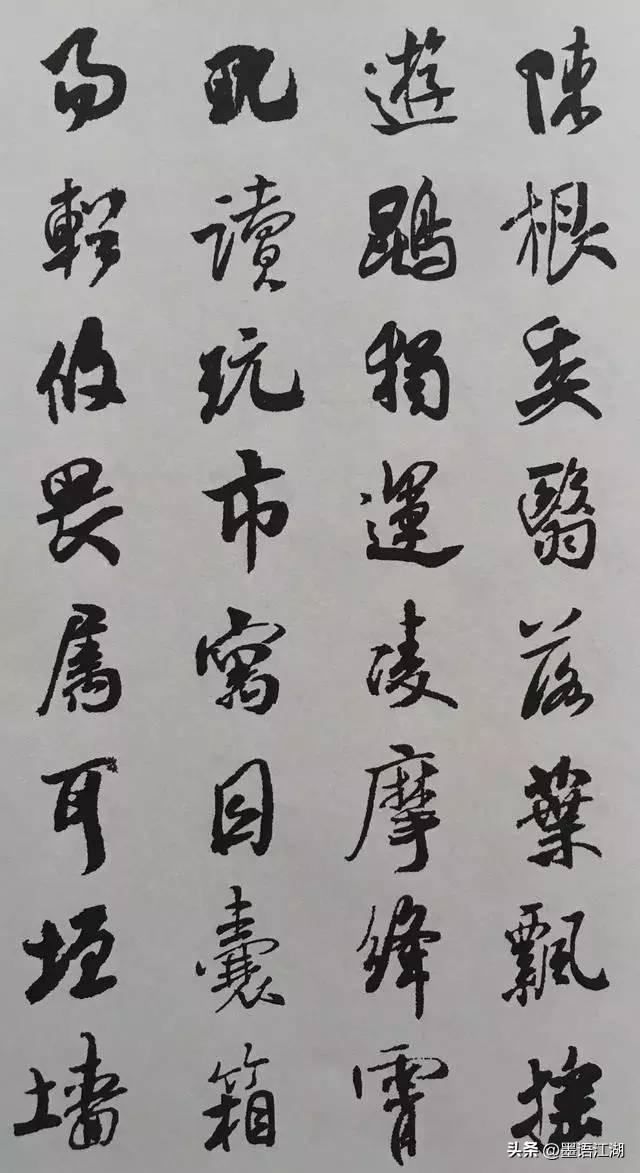 陳根委翳落葉飄搖
遊鵾獨運凌摩絳霄
耽讀玩市寓目囊箱
易輶攸畏属耳垣墻
头条 @墨语江湖